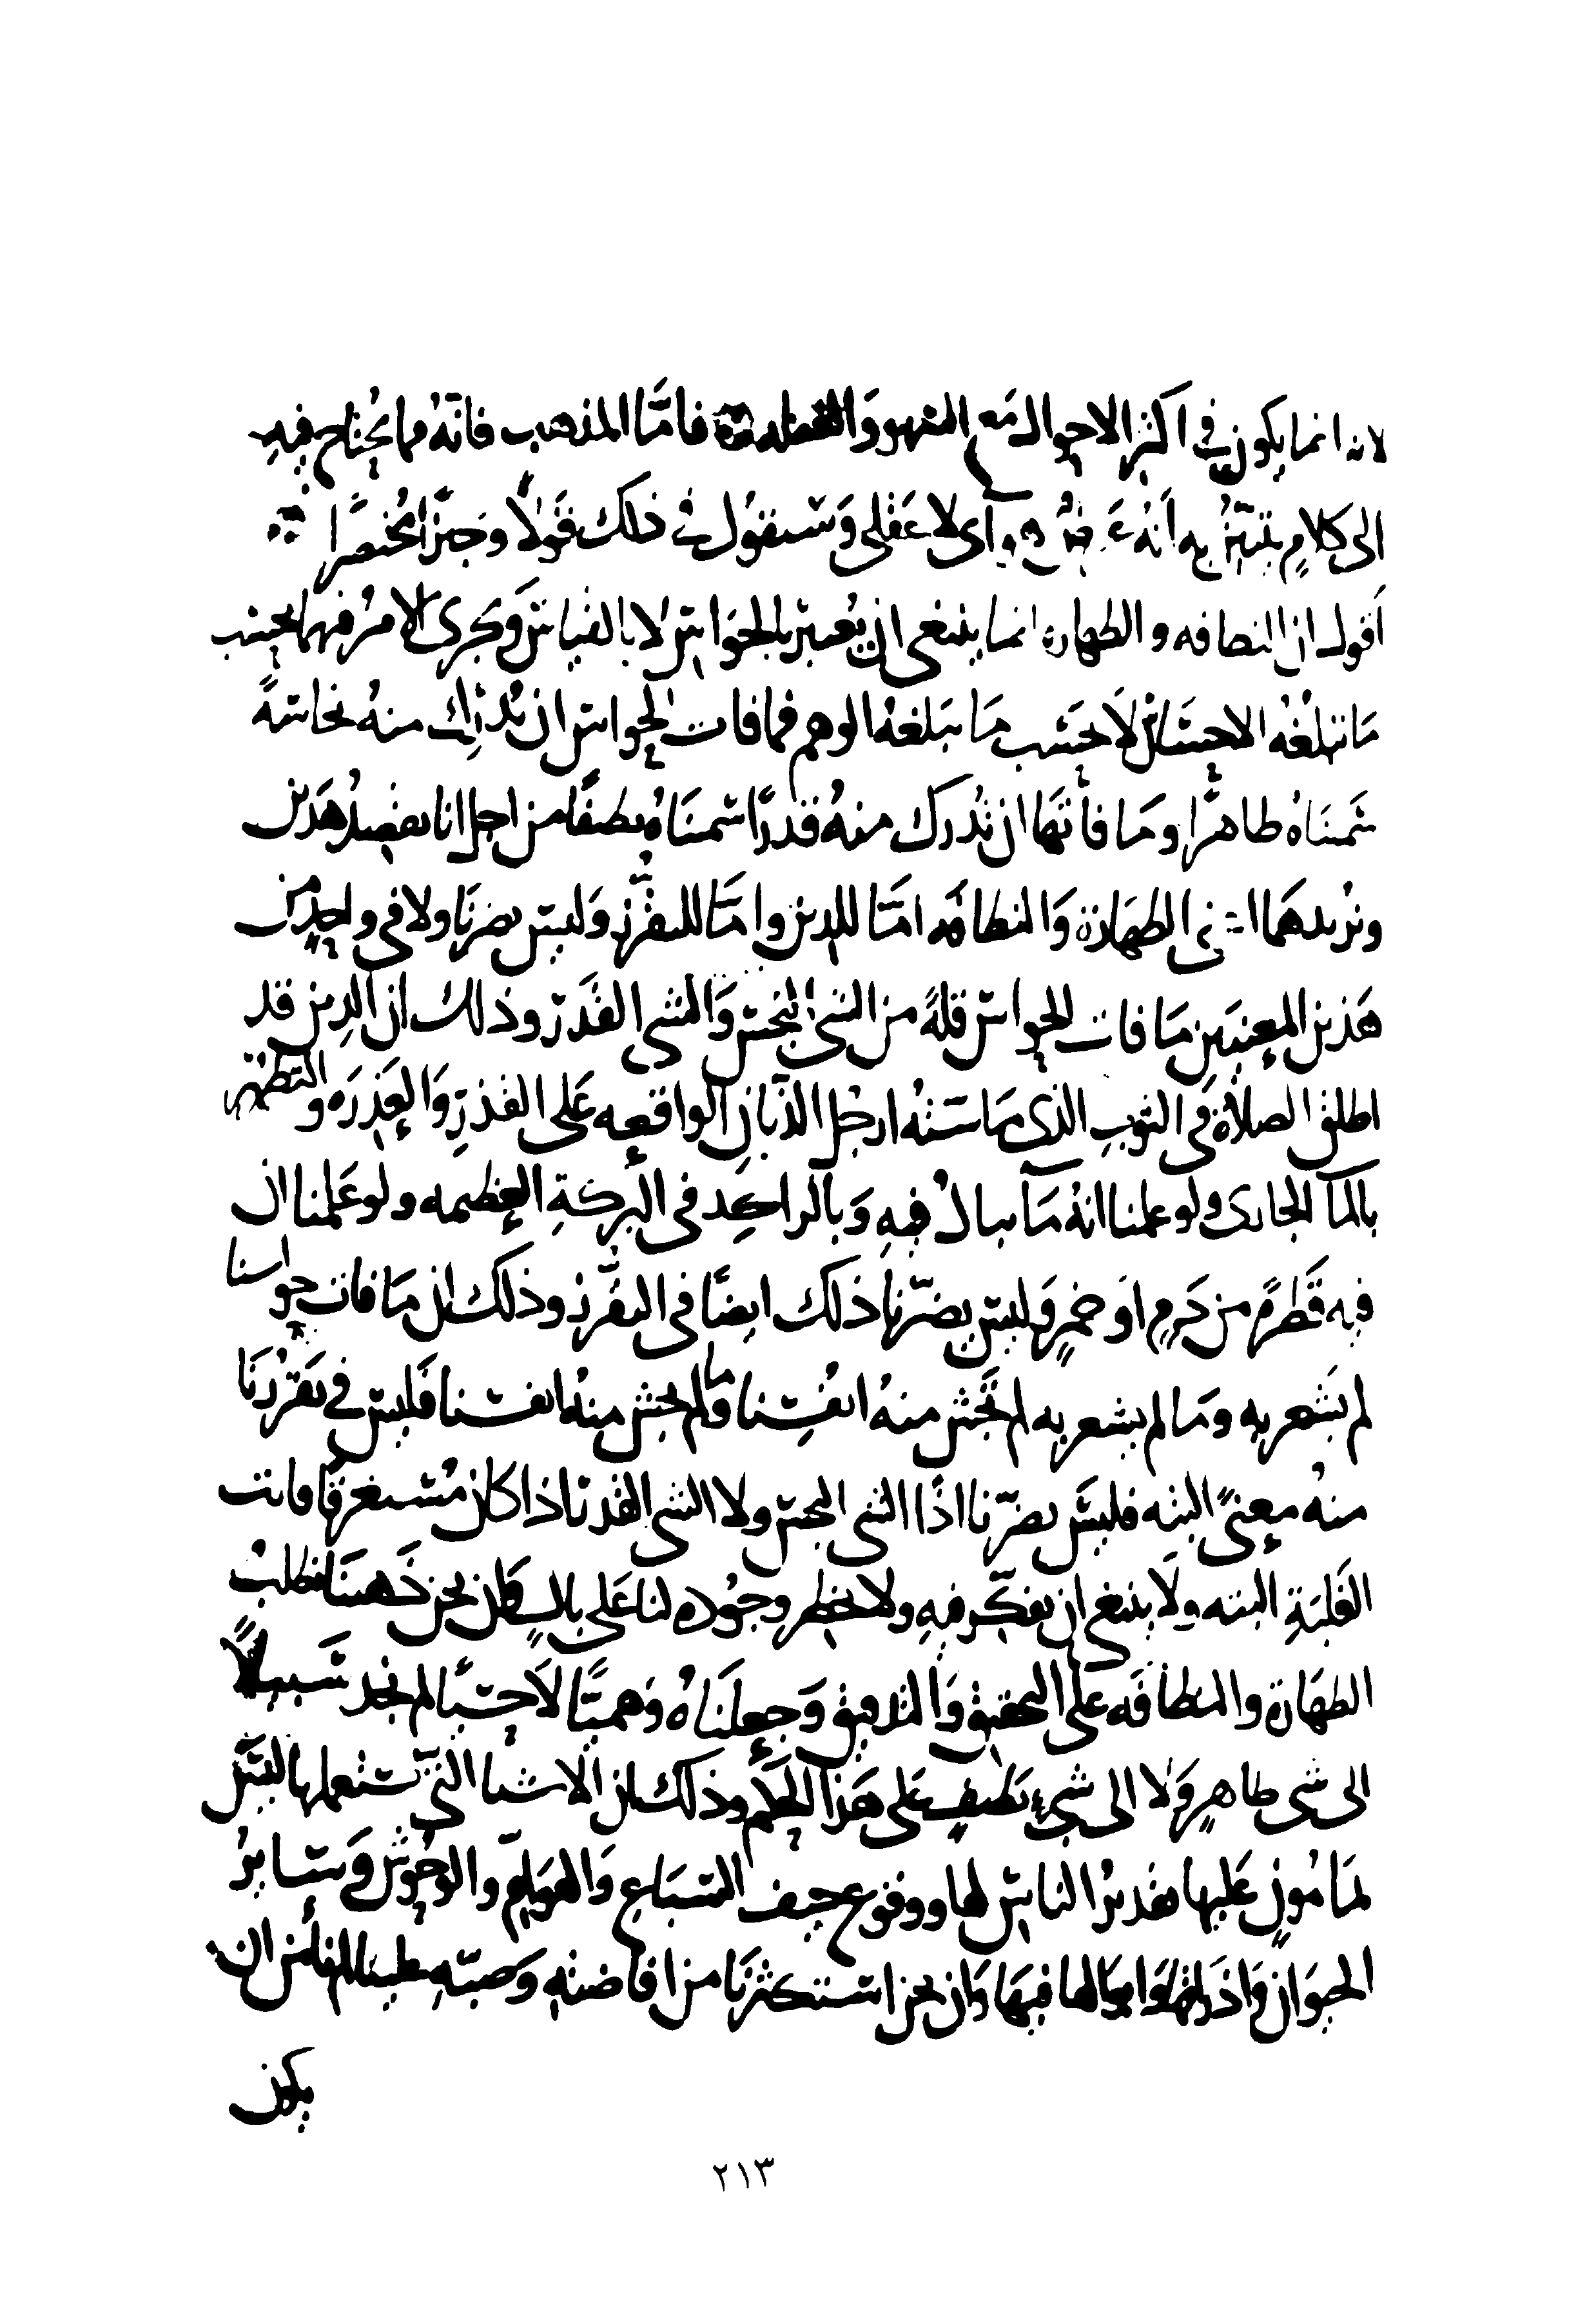 لانه انما يكون في اكثر الاحوال مع التهور و فاما المذهب فانه مما يحتاج فيه
الى كلام يتبين به انه هوائي لا عقلي وسنقول في ذلك قولا وجيزا مختصرا
أقول ان النظافه والطهارة انما ينبغي ان يعتبر بالحواس لا بالقياس ويجرى الامر فيهما بحسب
ما تبلغه الاحساس لا بحسب ما يبلغه الوهم فما فات الحواس ان تدرك منه نجاسةً
سميناه طاهرا وما فاتها ان تدرك منه قدرًا سميناه نظيفًا من اجل انا نقصد هذين
ونريدهما اعني الطهارة والنظافه امّا للدين وامّا للتقزز وليس يضرنا ولا في واحد من
هذين المعنيين ما فات الحواس قلةً من الشى النجس والشى القذر وذلك ان الدين قد
اطلق الصلاة في الثوب الذي ماسته ارجل الذبان الواقعه على القذر والعذره والتطهر
بالمآ الجارى ولو علمنا انه مما يبال فيه وبالراكد فى البركة العظيمه ولو علمنا ان
فيه قطرة من دم او خمر وليس يضرّنا ذلك ايضًا فى التقزز وذلك ان ما فات حواسنا
لم نشعر به وما لم نشعر به لم تجش منه انفسنا وما لم تجش منه انفسنا فليس في تقززنا
منه معنىً البته فليس يضرّنا اذًا الشى النجس ولا الشى القذر اذا كان مستغرقًا فائت
القلة البته ولا ينبغى ان نفكّر فيه ولا يخطر وجوده لنا على بال وان نحن ذهبنا نطلب
الطهارة والنظافه على التحقيق والتدقيق وجعلناه وهميًّا لا حسّيًّا لم نجد سبيلًا
الى شى طاهر ولا الى شىء نظيف على هذا الحكم وذلك ان الاشيا التي نستعملها ليس
بمأمون عليها تقذير الناس لها ووقوع جيف السباع والهوامّ والوحوش وساير
الحيوان واذراقها وابوالها فيها وان نحن استكثرنا من افاضته وصبّه علينا لم نأمن ان
يكون
٢١٣